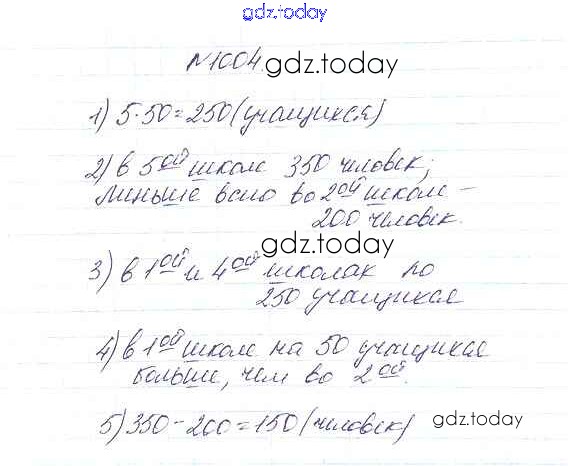 gdz.today
№1004.
gdz.today
1) 5·50=250(учащихся)
2) в 5ой школе 350 человек;
меньше всего во 2ой школе –
200 человек.
gdz.today
3) в 1ой и 4ой школах по
250 учащихся
4) в 1ой школе на 50 учащихся
больше, чем во 2ой.
5) 350-200=150(человек)
gdz.today